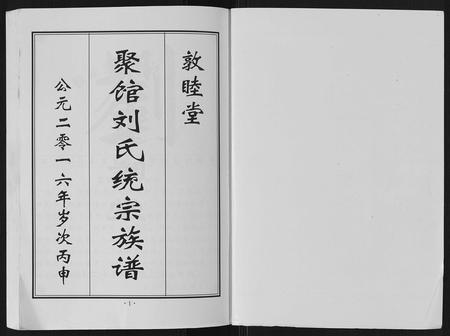 敦睦堂
聚馆刘氏统宗族谱
公元二零一六年岁次丙申
·1·